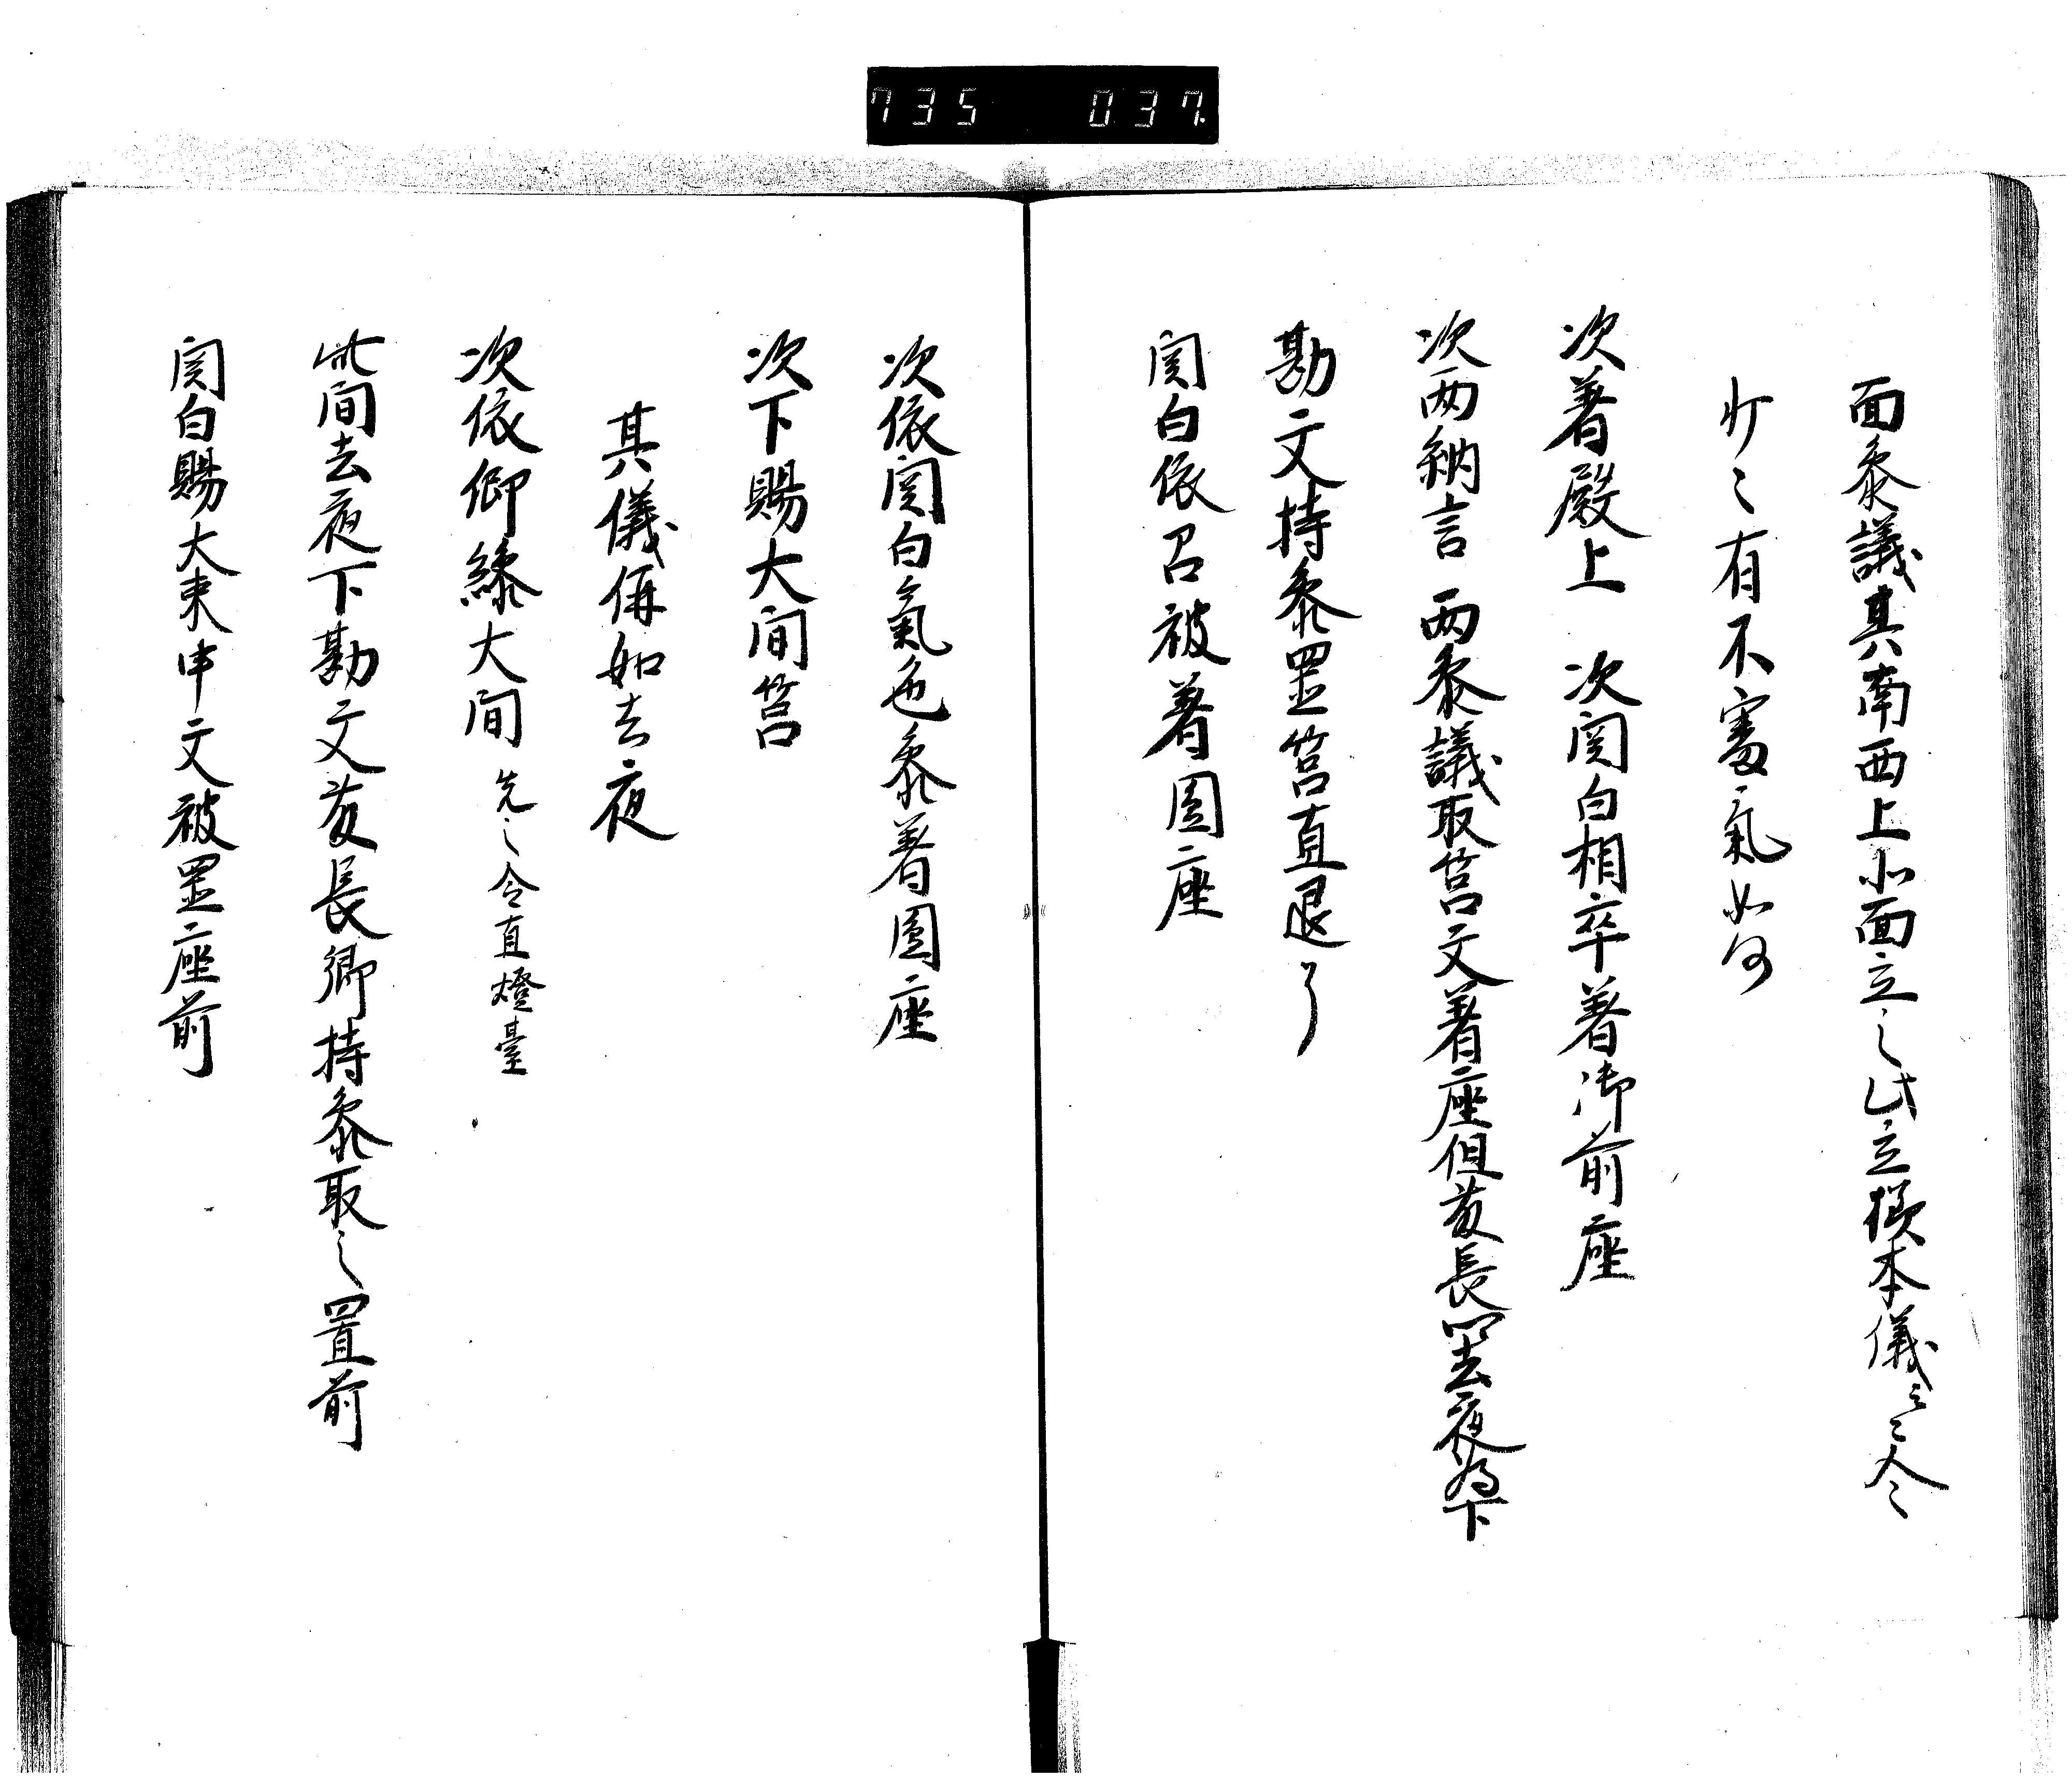 735 037
面參議其南西上北面立之此立様本儀云々今
行々有不審氣如何
次著殿上 次関白相率著御前座
次両納言 両參議取筥文著座但菅長置去夜為下
勘文持參置筥直退了
関白依召被著圓座
次依関白氣色參著圓座
次下賜大間筥
其儀併如去夜
次依仰繰大間 先之令直燈臺
此間去夜下勘文菅長卿持參取之置前
関白賜大束申文被置座前